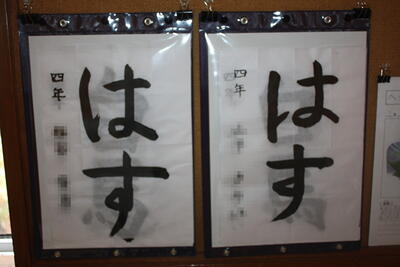 はす
四年
はす
四年